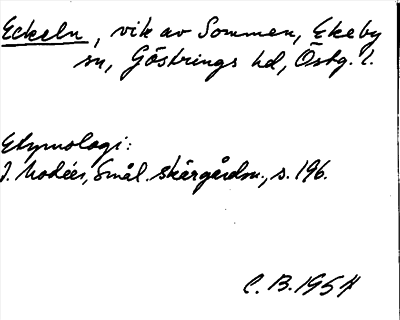 Eckeln, vik av Sommen, Ekeby
sn, Göstrings hd, Östg. l.
Etymologi:
J. Modéer, Smål. skärgårdsn., s. 196.
C. B. 1954